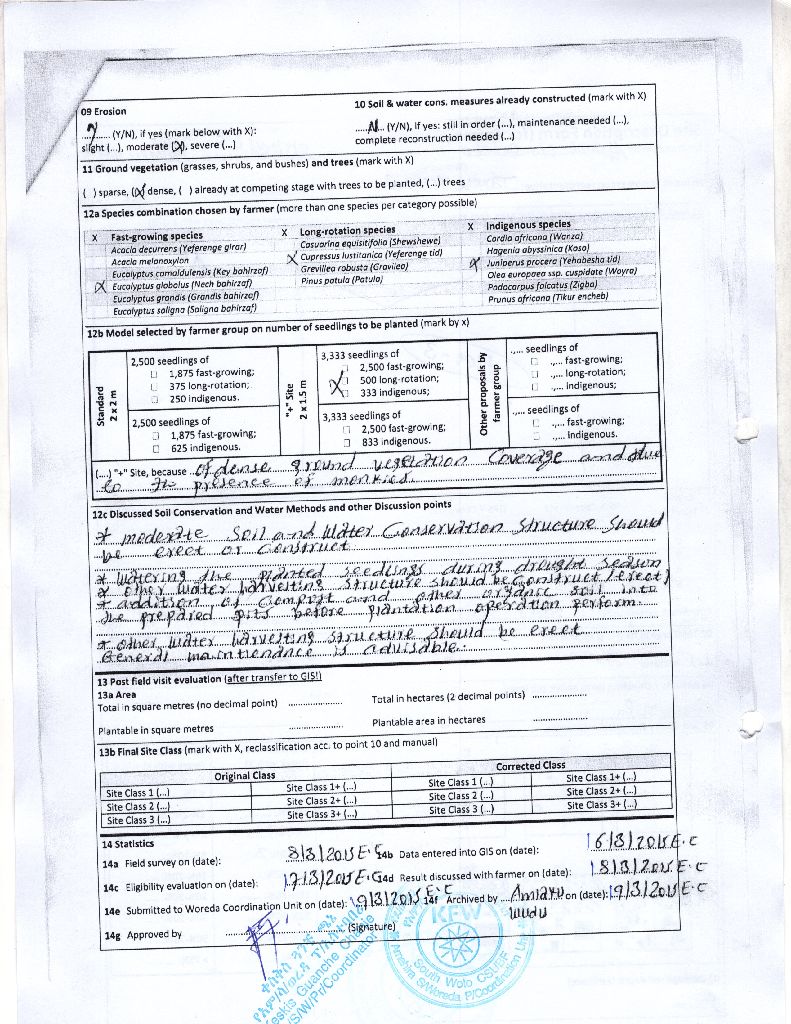 09 Erosion
10 Soil & water cons. measures already constructed (mark with X)
Y (Y/N), if yes (mark below with X):
slight (...), moderate (X), severe (...)
N (Y/N), If yes: still in order (...), maintenance needed (...),
complete reconstruction needed (...)
11 Ground vegetation (grasses, shrubs, and bushes) and trees (mark with X)
( ) sparse, (X) dense, ( ) already at competing stage with trees to be planted, (...) trees
12a Species combination chosen by farmer (more than one species per category possible)
X Fast-growing species
Acacia decurrers (Yeferenge girar)
Acacia melanoxylon
Eucalyptus camaldulensis (Key bahirzaf)
X Eucalyptus globolus (Nech bahirzaf)
Eucalyptus grandis (Grandis bahirzaf)
Eucalyptus saligna (Saligna bahirzaf)
X Long-rotation species
Casuarina equisitifolia (Shewshewe)
X Cupressus lustitanica (Yeferenge tid)
Grevillea robusta (Gravilea)
Pinus patula (Patula)
X Indigenous species
Cordia africana (Wanza)
Hagenia abyssinica (Koso)
X Juniperus procera (Yehabesha tid)
Olea europaea ssp. cuspidate (Woyra)
Podocarpus falcatus (Zigba)
Prunus africana (Tikur encheb)
12b Model selected by farmer group on number of seedlings to be planted (mark by x)
Standard
2 x 2 m
2,500 seedlings of
1,875 fast-growing;
375 long-rotation;
250 indigenous.
2,500 seedlings of
1,875 fast-growing;
625 indigenous.
"+" Site
2 x 1.5 m
3,333 seedlings of
2,500 fast-growing;
X 500 long-rotation;
333 indigenous;
3,333 seedlings of
2,500 fast-growing;
833 indigenous.
Other proposals by
farmer group
.,... seedlings of
.,... fast-growing;
.,... long-rotation;
.,... indigenous;
.,... seedlings of
.,... fast-growing;
.,... indigenous.
(....) "+" Site, because of dense ground vegetation Coverage and due
to the presence of monkies.
12c Discussed Soil Conservation and Water Methods and other Discussion points
* moderate Soil and Water Conservation Structure Should
be erect or Construct
* Watering the planted seedlings during drought season
* other water harvesting Structure should be Construct (erect)
* addition of Compost and other organic soil into
the prepared pits before plantation operation perform.
* other water harvesting structure Should be erect
General maintienance is advisable.
13 Post field visit evaluation (after transfer to GIS!)
13a Area
Total in square metres (no decimal point) ..................
Total in hectares (2 decimal points) ..................
Plantable in square metres ..................
Plantable area in hectares ..................
13b Final Site Class (mark with X, reclassification acc. to point 10 and manual)
Original Class
Corrected Class
Site Class 1 (...) Site Class 1+ (...) Site Class 1 (...) Site Class 1+ (...)
Site Class 2 (...) Site Class 2+ (...) Site Class 2 (...) Site Class 2+ (...)
Site Class 3 (...) Site Class 3+ (...) Site Class 3 (...) Site Class 3+ (...)
14 Statistics
14a Field survey on (date): 8/3/2015 E.C
14b Data entered into GIS on (date): 16/3/2015 E.C
14c Eligibility evaluation on (date): 17/3/2015 E.C
14d Result discussed with farmer on (date): 18/3/2015 E.C
14e Submitted to Woreda Coordination Unit on (date): 19/3/2015 E.C
14f Archived by on (date): 19/3/2015 E.C
14g Approved by
(Signature)
Guanche
S/W/Pr/Coordinator
KFW
South Wolo CSUBF
P/Coordination Unit